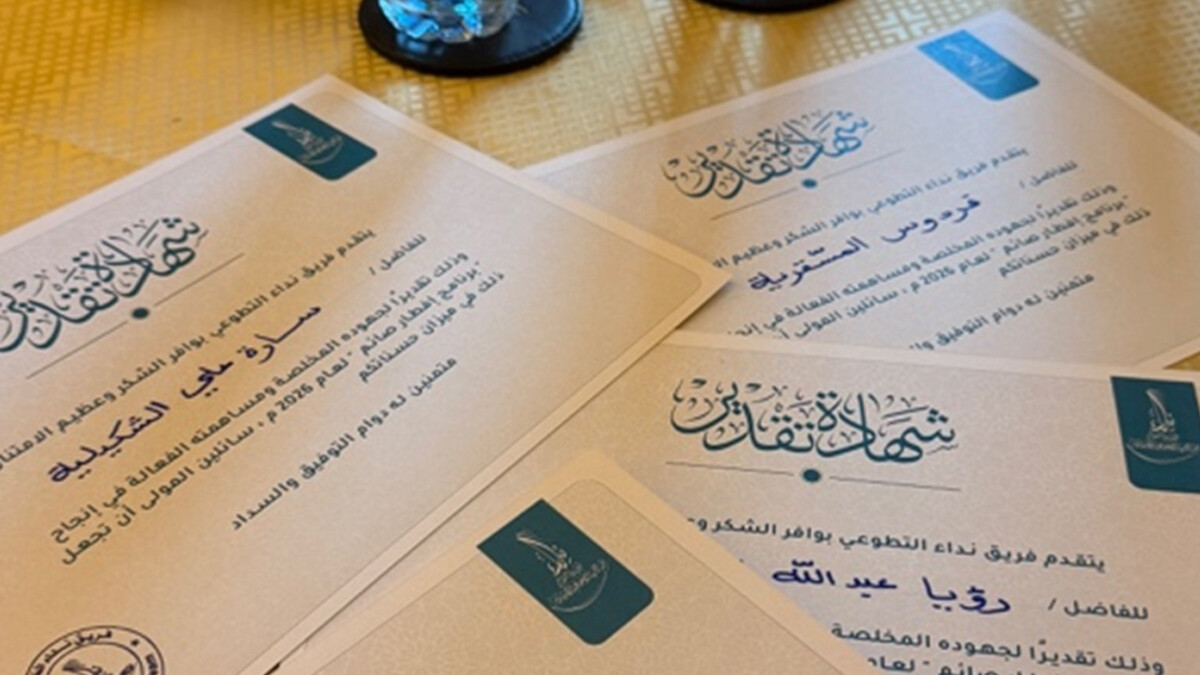 شهادة تقدير
يتقدم فريق نداء التطوعي بوافر الشكر وعظيم الامتنان
للفاضل /
سارة علي الشكيلية
وذلك تقديرًا لجهوده المخلصة ومساهمته الفعالة في إنجاح
"برنامج إفطار صائم" لعام 2026 م ، سائلين المولى أن تجعل
ذلك في ميزان حسناتكم
متمنين له دوام التوفيق والسداد
شهادة تقدير
يتقدم فريق نداء التطوعي بوافر الشكر وعظيم
للفاضل / فردوس
وذلك تقديرًا لجهوده المخلصة ومساهمته الفعالة في
"برنامج إفطار صائم" لعام 2026 م ، سائلين المولى
ذلك في ميزان حسناتكم
متمنين له دوام التوفيق
شهادة تقدير
يتقدم فريق نداء التطوعي بوافر الشكر
للفاضل / رؤيا عبد الله
وذلك تقديرًا لجهوده المخلصة
صائم" لعام
نداء
نداء